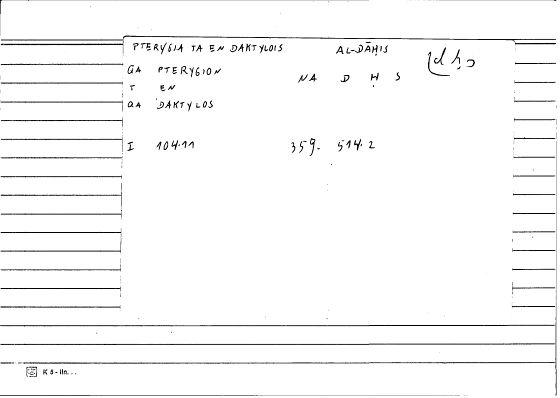 PTERYGIA TA EN DAKTYLOIS AL-DĀḤIS
GA PTERYGION NA D Ḥ S
T EN
QA DAKTYLOS
I 104.11 359. 514.2
K 5 - lin...